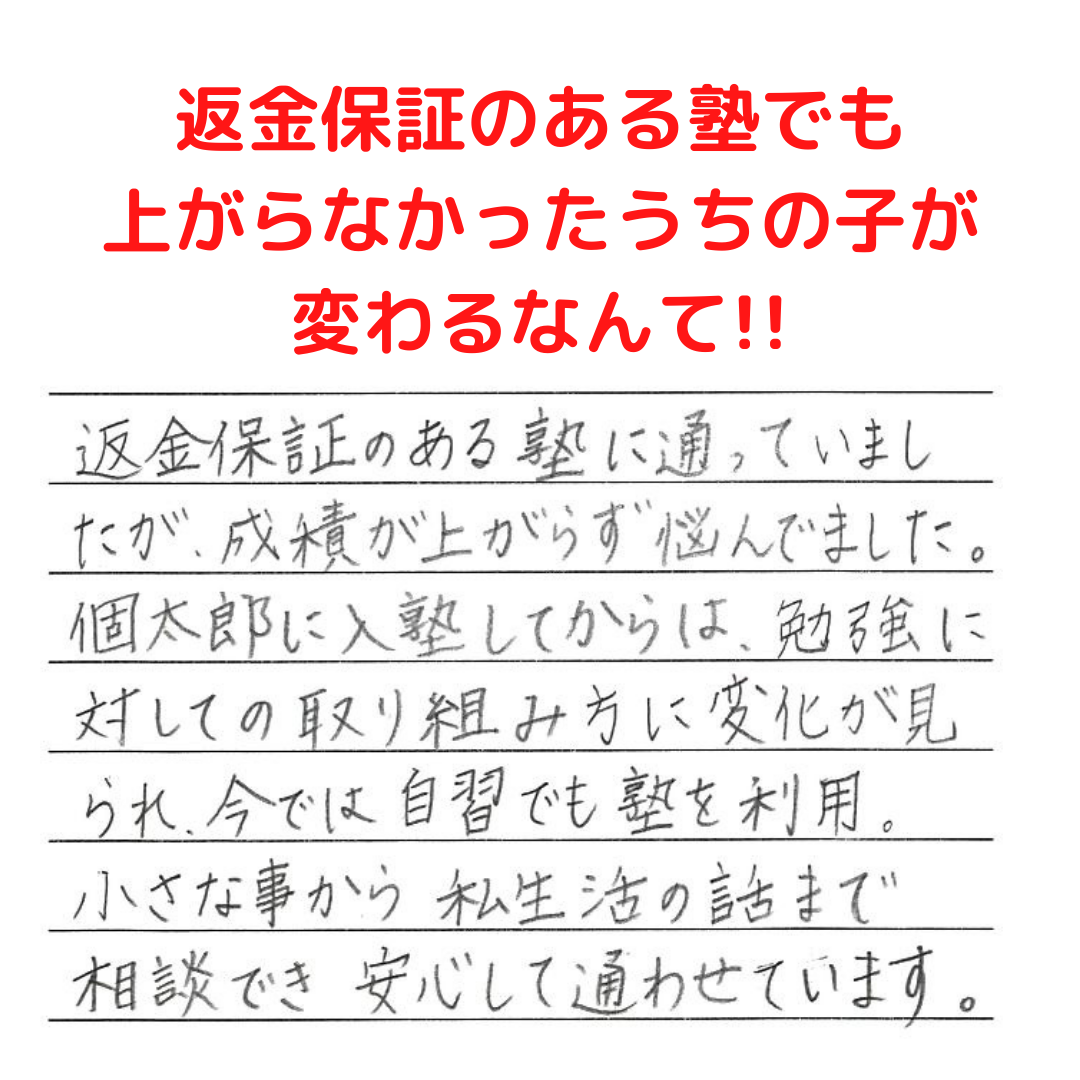 返金保証のある塾でも
上がらなかったうちの子が
変わるなんて!!
返金保証のある塾に通っていまし
たが、成績が上がらず悩んでました。
個太郎に入塾してからは、勉強に
対しての取り組み方に変化が見
られ、今では自習でも塾を利用。
小さな事から 私生活の話まで
相談でき 安心して通わせています。